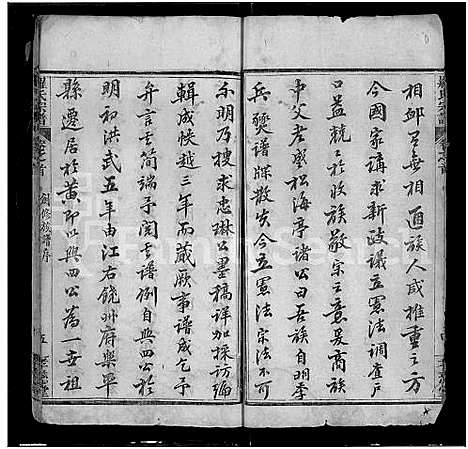 相邱呂無相通族人咸推重之方
今國家講求新政議立憲法調查戶
口益兢兢於收族敬宗之意爰商族
中父老盛松海亭諸公曰吾族自明季
兵燹譜牒散失今立憲法宗法不可
不明乃搜求忠琳公墨稿詳加採訪編
輯成帙越三年而蕆厥事譜成乞予
弁言其簡端予閱其譜例自興四公於
明初洪武五年由江右饒州府樂平
縣遷居於黃即以興四公為一世祖
氏宗譜
卷之首
創修族譜序
五
FamilySearch